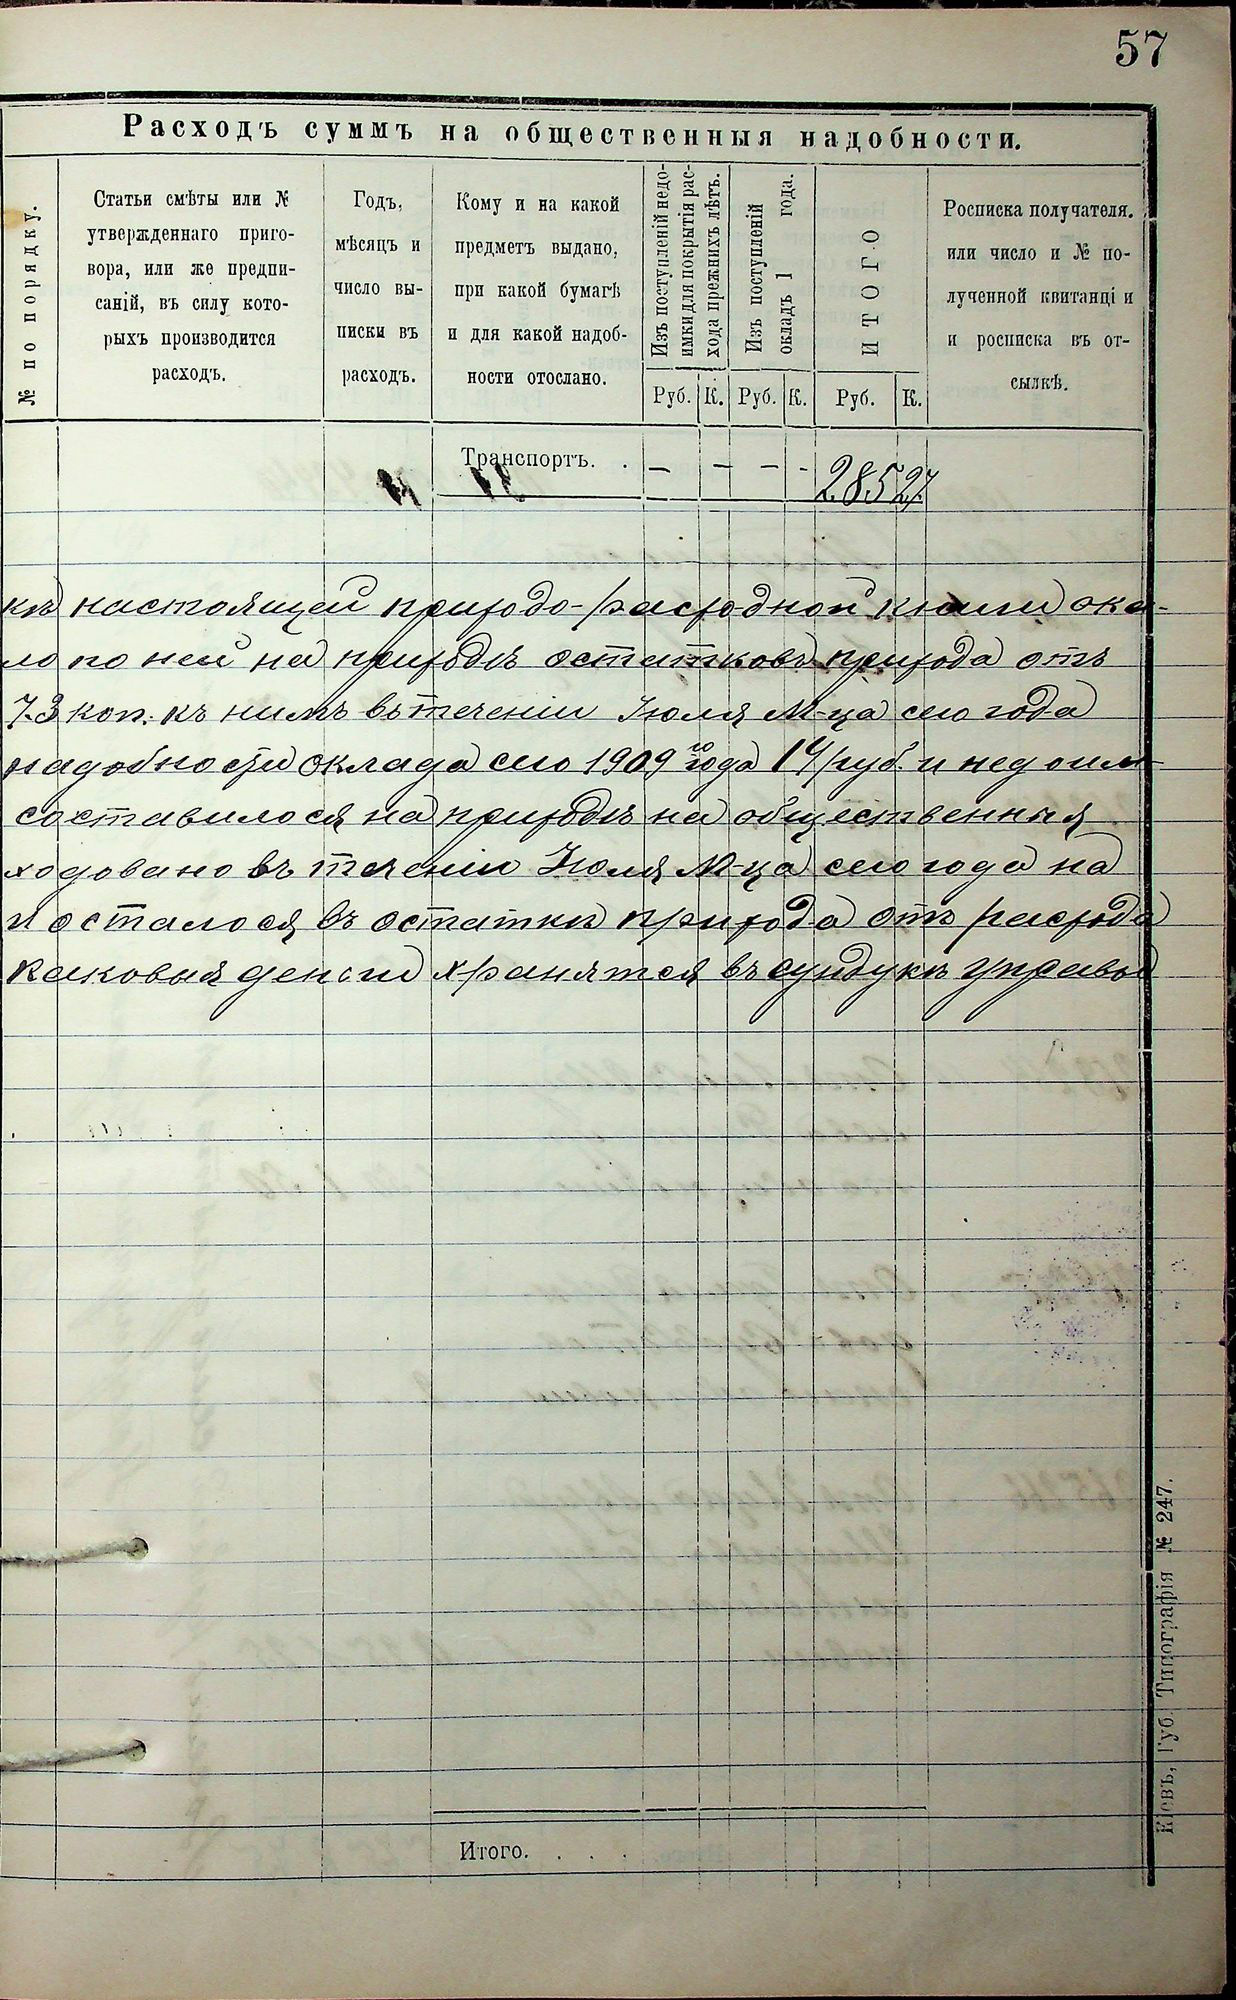 57
Расходъ суммъ на общественныя надобности.
№ по порядку.
Статьи смѣты или №
утвержденнаго приго-
вора, или же предпи-
саній, въ силу кото-
рыхъ производится
расходъ.
Годъ,
мѣсяцъ и
число вы-
писки въ
расходъ.
Кому и на какой
предметъ выдано,
при какой бумагѣ
и для какой надоб-
ности отослано.
Изъ поступленій недо-
имки для покрытія рас-
хода прежнихъ лѣтъ.
Изъ поступленій
окладъ 1 года.
ИТОГО
Росписка получателя.
или число и № по-
лученной квитанціи
и росписка въ от-
сылкѣ.
Руб. К. Руб. К. Руб. К.
Транспортъ. . — — — - 285 27
къ настоящей приходо-расходной книги ока-
ло по ней на приходѣ остатковъ прихода отъ
73 коп. къ нимъ въ теченіи Июля М-ца сего года
надобности оклада сего 1909 го года 14 руб. и недоим
составилося на приходѣ на общественныя
ходовано въ теченіи Июля М-ца сего года на
и осталося въ остаткѣ прихода отъ расхода
каковыя деньги хранятся въ сундукѣ управы
Итого. . . .
Кіевъ, Губ. Типографія № 247.